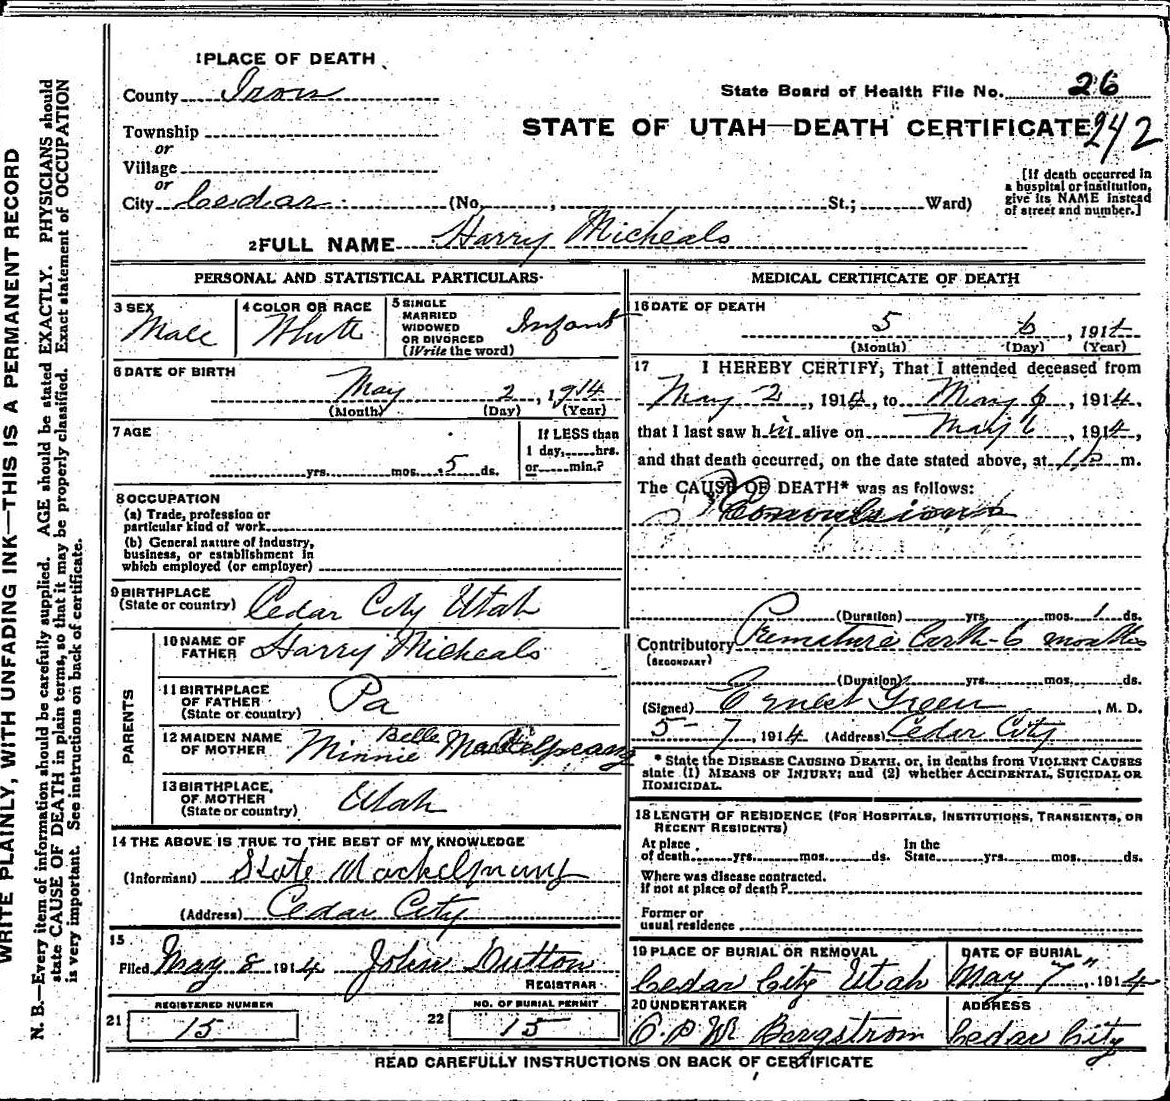 WRITE PLAINLY, WITH UNFADING INK—THIS IS A PERMANENT RECORD
N. B.—Every item of information should be carefully supplied. AGE should be stated EXACTLY. PHYSICIANS should
state CAUSE OF DEATH in plain terms, so that it may be properly classified. Exact statement of OCCUPATION
is very important. See instructions on back of certificate.
1 PLACE OF DEATH
County Iron
State Board of Health File No. 26
Township
or
STATE OF UTAH—DEATH CERTIFICATE 242
Village
or
City Cedar (No. , St.; Ward)
[If death occurred in
a hospital or institution,
give its NAME instead
of street and number.]
2 FULL NAME Harry Micheals
PERSONAL AND STATISTICAL PARTICULARS
3 SEX
Male
4 COLOR OR RACE
White
5 SINGLE
MARRIED
WIDOWED
OR DIVORCED
(Write the word)
Infant
6 DATE OF BIRTH
May 2, 1914
(Month) (Day) (Year)
7 AGE
yrs. mos. 5 ds.
If LESS than
1 day, hrs.
or min.?
8 OCCUPATION
(a) Trade, profession or
particular kind of work
(b) General nature of industry,
business, or establishment in
which employed (or employer)
9 BIRTHPLACE
(State or country) Cedar City Utah
PARENTS
10 NAME OF
FATHER Harry Micheals
11 BIRTHPLACE
OF FATHER
(State or country) Pa
12 MAIDEN NAME
OF MOTHER Minnie Belle
13 BIRTHPLACE,
OF MOTHER
(State or country) Utah
14 THE ABOVE IS TRUE TO THE BEST OF MY KNOWLEDGE
(Informant) Mackelprang
(Address) Cedar City
15
Filed May 8 1914 John Dutton
REGISTRAR
REGISTERED NUMBER
21 15
NO. OF BURIAL PERMIT
22 15
MEDICAL CERTIFICATE OF DEATH
16 DATE OF DEATH
5 6, 1914
(Month) (Day) (Year)
17 I HEREBY CERTIFY, That I attended deceased from
May 2, 1914, to May 6, 1914,
that I last saw h im alive on May 6, 1914,
and that death occurred, on the date stated above, at m.
The CAUSE OF DEATH* was as follows:
Convulsions
(Duration) yrs. mos. 1 ds.
Contributory Premature birth 6 months
(SECONDARY)
(Duration) yrs. mos. ds.
(Signed) Ernest Green, M. D.
5-7, 1914 (Address) Cedar City
* State the DISEASE CAUSING DEATH, or, in deaths from VIOLENT CAUSES
state (1) MEANS OF INJURY; and (2) whether ACCIDENTAL, SUICIDAL OR
HOMICIDAL.
18 LENGTH OF RESIDENCE (FOR HOSPITALS, INSTITUTIONS, TRANSIENTS, OR
RECENT RESIDENTS)
At place
of death yrs. mos. ds.
In the
State yrs. mos. ds.
Where was disease contracted.
if not at place of death?
Former or
usual residence
19 PLACE OF BURIAL OR REMOVAL
Cedar City Utah
DATE OF BURIAL
May 7", 1914
20 UNDERTAKER
C. P. W. Bergstrom
ADDRESS
Cedar City
READ CAREFULLY INSTRUCTIONS ON BACK OF CERTIFICATE